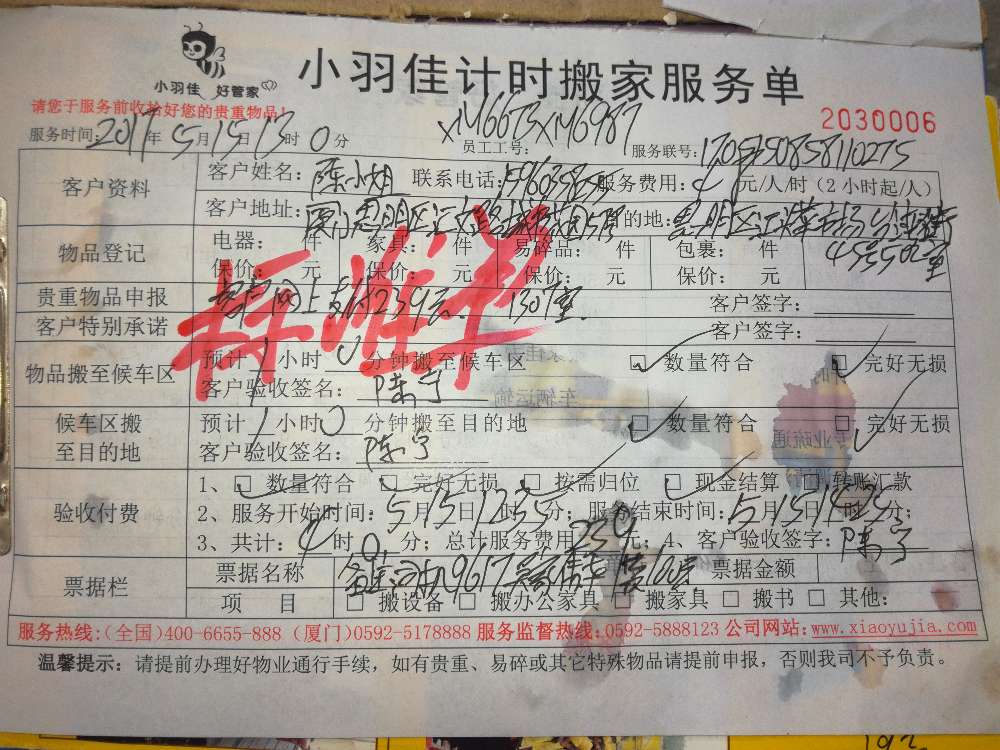 小羽佳 好管家
小羽佳计时搬家服务单
请您于服务前收拾好您的贵重物品!
2030006
服务时间: 2017年5月15日13时0分 员工工号: XM6673 XM6987 服务联号:
客户资料 客户姓名: 陈小姐 联系电话: 服务费用: 元/人/时(2小时起/人)
客户地址: 目的地:
物品登记 电器: 件 家具: 件 易碎品: 件 包裹: 件
保价: 元 保价: 元 保价: 元 保价: 元
贵重物品申报 网上支付239元 1307室 客户签字:
客户特别承诺 客户签字:
标准单
物品搬至候车区 预计1小时0分钟搬至候车区 □数量符合 □完好无损
客户验收签名: 陈宁
候车区搬至目的地 预计1小时0分钟搬至目的地 □数量符合 □完好无损
客户验收签名: 陈宁
验收付费 1、□数量符合 □完好无损 □按需归位 □现金结算 □转账汇款
2、服务开始时间: 5月15日12时35分; 服务结束时间: 5月15日14时25分;
3、共计: 4时0分; 总计服务费用239元; 4、客户验收签字: 陈宁
票据栏 票据名称 票据金额
项 目 □搬设备 □搬办公家具 □搬家具 □搬书 □其他:
服务热线:(全国)400-6655-888 (厦门)0592-5178888 服务监督热线:0592-5888123 公司网站:www.xiaoyujia.com
温馨提示: 请提前办理好物业通行手续, 如有贵重、易碎或其它特殊物品请提前申报, 否则我司不予负责。